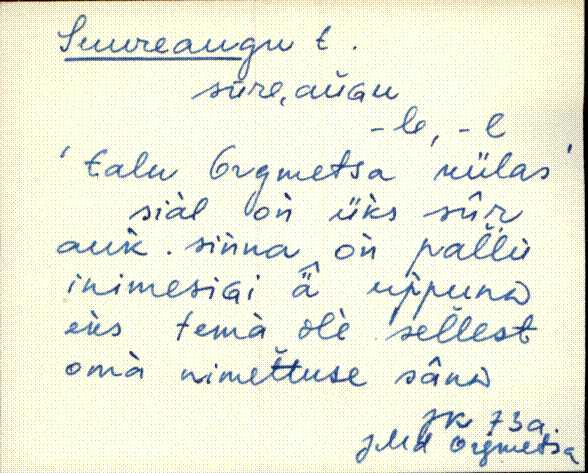 Suureaugu t.
sūre, au̬gu
-le, -l
'talu Orgmetsa külas'
siàl òn üks sûr
auk. sinna òn pal̆lù
inimesigi ä̂ uppunu̬
eìs temà olè sel̆lest
omà nimet̆tuse sânu̬
JK 73a.
JMd Orgmetsa